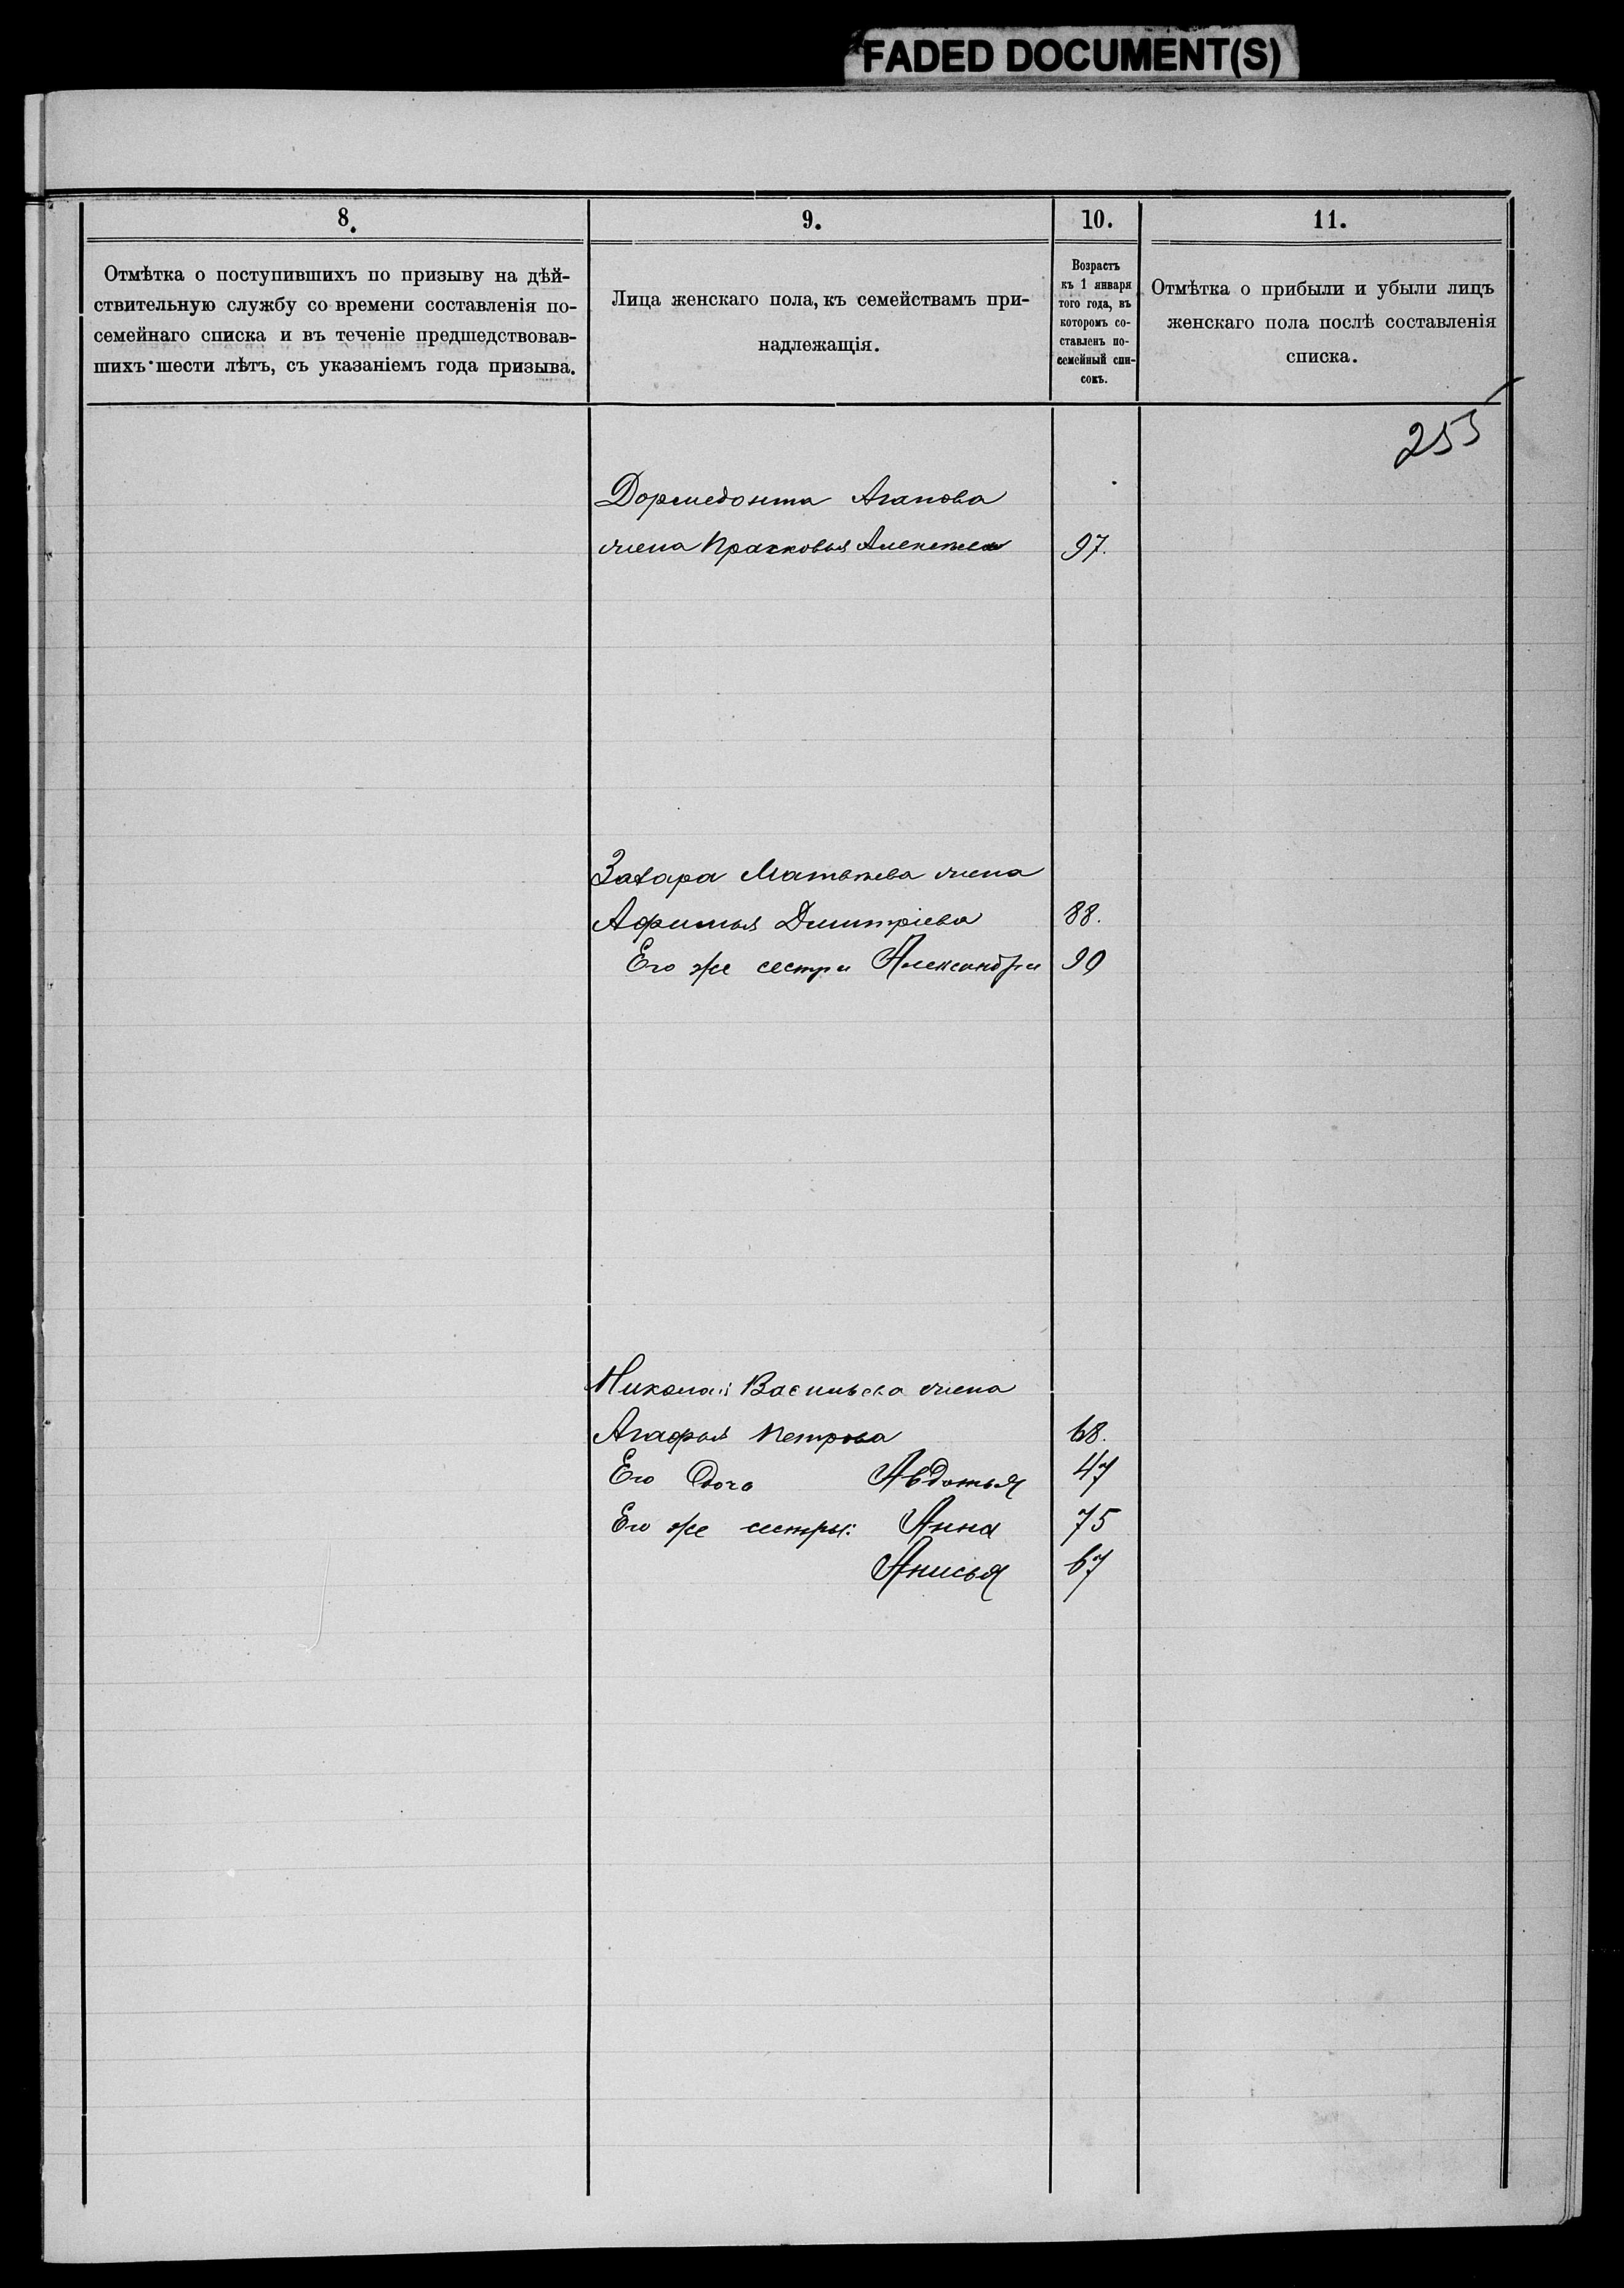 FADED DOCUMENT(S)
8.
9.
10.
11.
Отмѣтка о поступившихъ по призыву на дѣй-
ствительную службу со времени составленія по-
семейнаго списка и въ теченіе предшедствовав-
шихъ шести лѣтъ, съ указаніемъ года призыва.
Лица женскаго пола, къ семействамъ при-
надлежащія.
Возрастъ
къ 1 января
того года, въ
которомъ со-
ставленъ по-
семейный спи-
сокъ.
Отмѣтка о прибыли и убыли лицъ
женскаго пола послѣ составленія
списка.
255
Дормедонта Агапова
жена Прасковья 97.
Захара Матвѣева жена
Афимья Дмитріева 88.
Его же сестра Александра 90
Николая Васильева жена
Агафья Петрова 68.
Его Дочь Авдотья 47
Его же сестры: Анна 75
Анисья 67